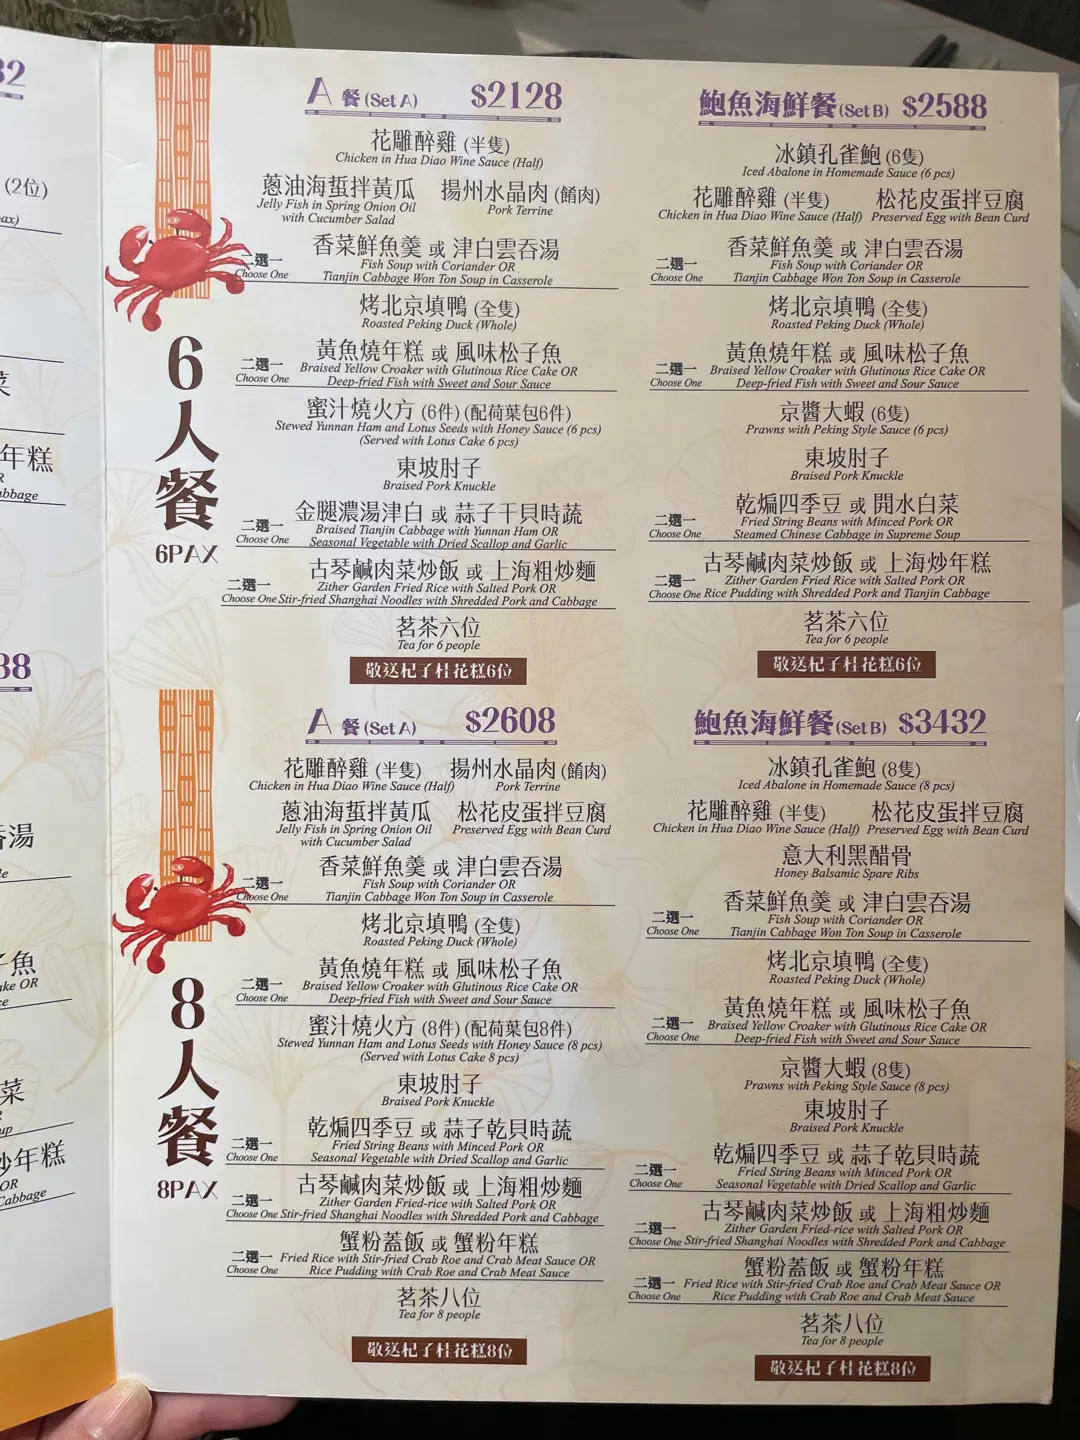 32
(2位)
ax)
菜
年糕
R
abbage
38
吞湯
le
子魚
ake OR
ce
菜
R
up
炒年糕
OR
Cabbage
6
人
餐
6PAX
A 餐 (Set A) $2128
花雕醉雞 (半隻)
Chicken in Hua Diao Wine Sauce (Half)
蔥油海蜇拌黃瓜 揚州水晶肉 (餚肉)
Jelly Fish in Spring Onion Oil Pork Terrine
with Cucumber Salad
香菜鮮魚羹 或 津白雲吞湯
二選一 Fish Soup with Coriander OR
Choose One Tianjin Cabbage Won Ton Soup in Casserole
烤北京填鴨 (全隻)
Roasted Peking Duck (Whole)
黃魚燒年糕 或 風味松子魚
二選一 Braised Yellow Croaker with Glutinous Rice Cake OR
Choose One Deep-fried Fish with Sweet and Sour Sauce
蜜汁燒火方 (6件) (配荷葉包6件)
Stewed Yunnan Ham and Lotus Seeds with Honey Sauce (6 pcs)
(Served with Lotus Cake 6 pcs)
東坡肘子
Braised Pork Knuckle
金腿濃湯津白 或 蒜子干貝時蔬
二選一 Braised Tianjin Cabbage with Yunnan Ham OR
Choose One Seasonal Vegetable with Dried Scallop and Garlic
古琴鹹肉菜炒飯 或 上海粗炒麵
二選一 Zither Garden Fried Rice with Salted Pork OR
Choose One Stir-fried Shanghai Noodles with Shredded Pork and Cabbage
茗茶六位
Tea for 6 people
敬送杞子桂花糕6位
鮑魚海鮮餐 (Set B) $2588
冰鎮孔雀鮑 (6隻)
Iced Abalone in Homemade Sauce (6 pcs)
花雕醉雞 (半隻) 松花皮蛋拌豆腐
Chicken in Hua Diao Wine Sauce (Half) Preserved Egg with Bean Curd
香菜鮮魚羹 或 津白雲吞湯
二選一 Fish Soup with Coriander OR
Choose One Tianjin Cabbage Won Ton Soup in Casserole
烤北京填鴨 (全隻)
Roasted Peking Duck (Whole)
黃魚燒年糕 或 風味松子魚
二選一 Braised Yellow Croaker with Glutinous Rice Cake OR
Choose One Deep-fried Fish with Sweet and Sour Sauce
京醬大蝦 (6隻)
Prawns with Peking Style Sauce (6 pcs)
東坡肘子
Braised Pork Knuckle
乾煸四季豆 或 開水白菜
二選一 Fried String Beans with Minced Pork OR
Choose One Steamed Chinese Cabbage in Supreme Soup
古琴鹹肉菜炒飯 或 上海炒年糕
二選一 Zither Garden Fried Rice with Salted Pork OR
Choose One Rice Pudding with Shredded Pork and Tianjin Cabbage
茗茶六位
Tea for 6 people
敬送杞子桂花糕6位
8
人
餐
8PAX
A 餐 (Set A) $2608
花雕醉雞 (半隻) 揚州水晶肉 (餚肉)
Chicken in Hua Diao Wine Sauce (Half) Pork Terrine
蔥油海蜇拌黃瓜 松花皮蛋拌豆腐
Jelly Fish in Spring Onion Oil Preserved Egg with Bean Curd
with Cucumber Salad
香菜鮮魚羹 或 津白雲吞湯
二選一 Fish Soup with Coriander OR
Choose One Tianjin Cabbage Won Ton Soup in Casserole
烤北京填鴨 (全隻)
Roasted Peking Duck (Whole)
黃魚燒年糕 或 風味松子魚
二選一 Braised Yellow Croaker with Glutinous Rice Cake OR
Choose One Deep-fried Fish with Sweet and Sour Sauce
蜜汁燒火方 (8件) (配荷葉包8件)
Stewed Yunnan Ham and Lotus Seeds with Honey Sauce (8 pcs)
(Served with Lotus Cake 8 pcs)
東坡肘子
Braised Pork Knuckle
乾煸四季豆 或 蒜子乾貝時蔬
二選一 Fried String Beans with Minced Pork OR
Choose One Seasonal Vegetable with Dried Scallop and Garlic
古琴鹹肉菜炒飯 或 上海粗炒麵
二選一 Zither Garden Fried-rice with Salted Pork OR
Choose One Stir-fried Shanghai Noodles with Shredded Pork and Cabbage
蟹粉蓋飯 或 蟹粉年糕
二選一 Fried Rice with Stir-fried Crab Roe and Crab Meat Sauce OR
Choose One Rice Pudding with Crab Roe and Crab Meat Sauce
茗茶八位
Tea for 8 people
敬送杞子桂花糕8位
鮑魚海鮮餐 (Set B) $3432
冰鎮孔雀鮑 (8隻)
Iced Abalone in Homemade Sauce (8 pcs)
花雕醉雞 (半隻) 松花皮蛋拌豆腐
Chicken in Hua Diao Wine Sauce (Half) Preserved Egg with Bean Curd
意大利黑醋骨
Honey Balsamic Spare Ribs
香菜鮮魚羹 或 津白雲吞湯
二選一 Fish Soup with Coriander OR
Choose One Tianjin Cabbage Won Ton Soup in Casserole
烤北京填鴨 (全隻)
Roasted Peking Duck (Whole)
黃魚燒年糕 或 風味松子魚
二選一 Braised Yellow Croaker with Glutinous Rice Cake OR
Choose One Deep-fried Fish with Sweet and Sour Sauce
京醬大蝦 (8隻)
Prawns with Peking Style Sauce (8 pcs)
東坡肘子
Braised Pork Knuckle
乾煸四季豆 或 蒜子乾貝時蔬
二選一 Fried String Beans with Minced Pork OR
Choose One Seasonal Vegetable with Dried Scallop and Garlic
古琴鹹肉菜炒飯 或 上海粗炒麵
二選一 Zither Garden Fried-rice with Salted Pork OR
Choose One Stir-fried Shanghai Noodles with Shredded Pork and Cabbage
蟹粉蓋飯 或 蟹粉年糕
二選一 Fried Rice with Stir-fried Crab Roe and Crab Meat Sauce OR
Choose One Rice Pudding with Crab Roe and Crab Meat Sauce
茗茶八位
Tea for 8 people
敬送杞子桂花糕8位